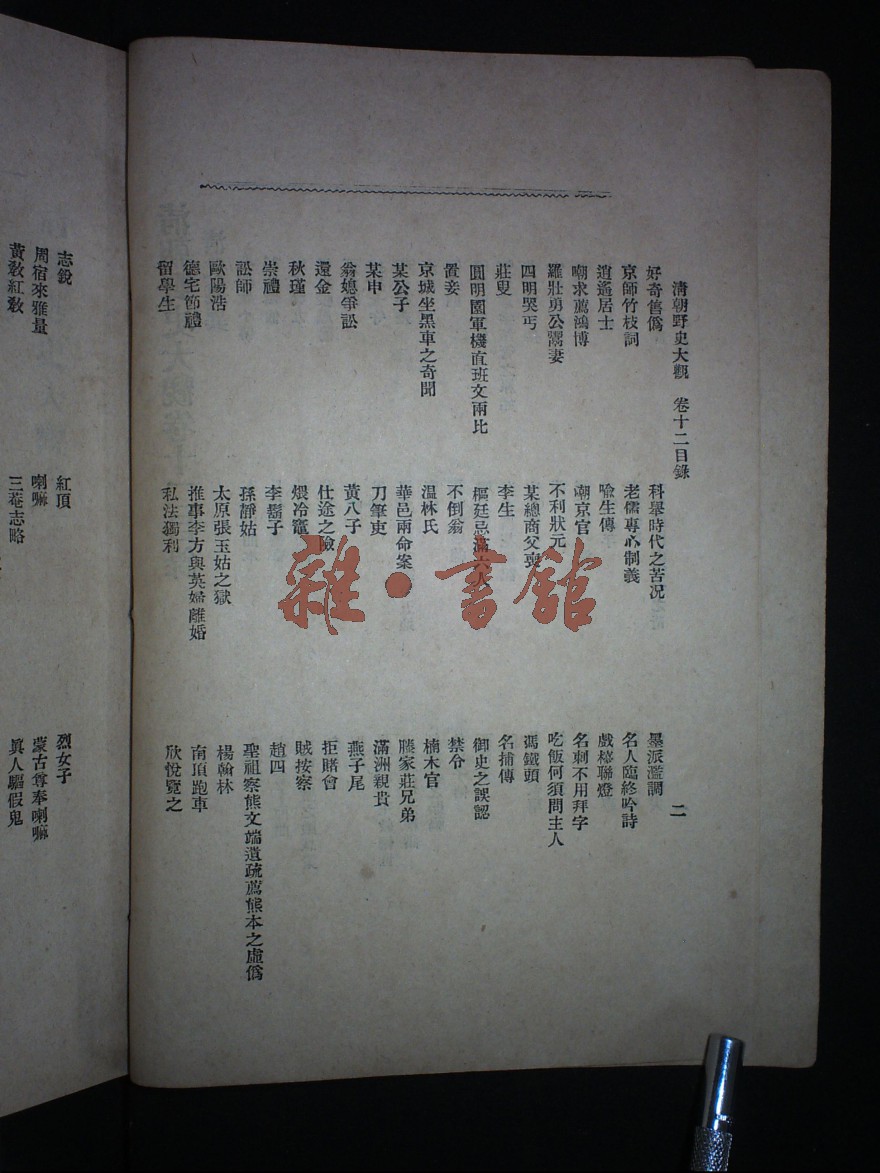 清朝野史大觀 卷十二目錄 二
好奇售僞 科舉時代之苦況 墨派濫調
京師竹枝詞 老儒專心制義 名人臨終吟詩
逍遙居士 喻生傳 戲檯聯燈
嘲求薦鴻博 嘲京官 名刺不用拜字
羅壯勇公鬻妻 不利狀元 吃飯何須問主人
四明哭丐 某總商父喪 馮鐵頭
莊叟 李生 名捕傳
圓明園軍機直班文兩比 樞廷忌滿六人 御史之誤認
置妾 不倒翁 禁令
京城坐黑車之奇聞 温林氏 楠木官
某公子 華邑兩命案 滕家莊兄弟
某申 刀筆吏 滿洲親貴
翁媳爭訟 黃八子 燕子尾
還金 仕途之險 拒賭會
秋瑾 煨冷竈 賊按察
崇禮 李鬍子 趙四
訟師 孫靜姑 聖祖察熊文端遺疏薦熊本之虛僞
歐陽浩 太原張玉姑之獄 楊翰林
德宅節禮 推事李方與英婦離婚 南頂跑車
留學生 私法獨利 欣悅覽之
志銳 紅頂 烈女子
周宿來雅量 喇嘛 蒙古尊奉喇嘛
黃教紅教 三菴志略 眞人驅假鬼
雜·書館